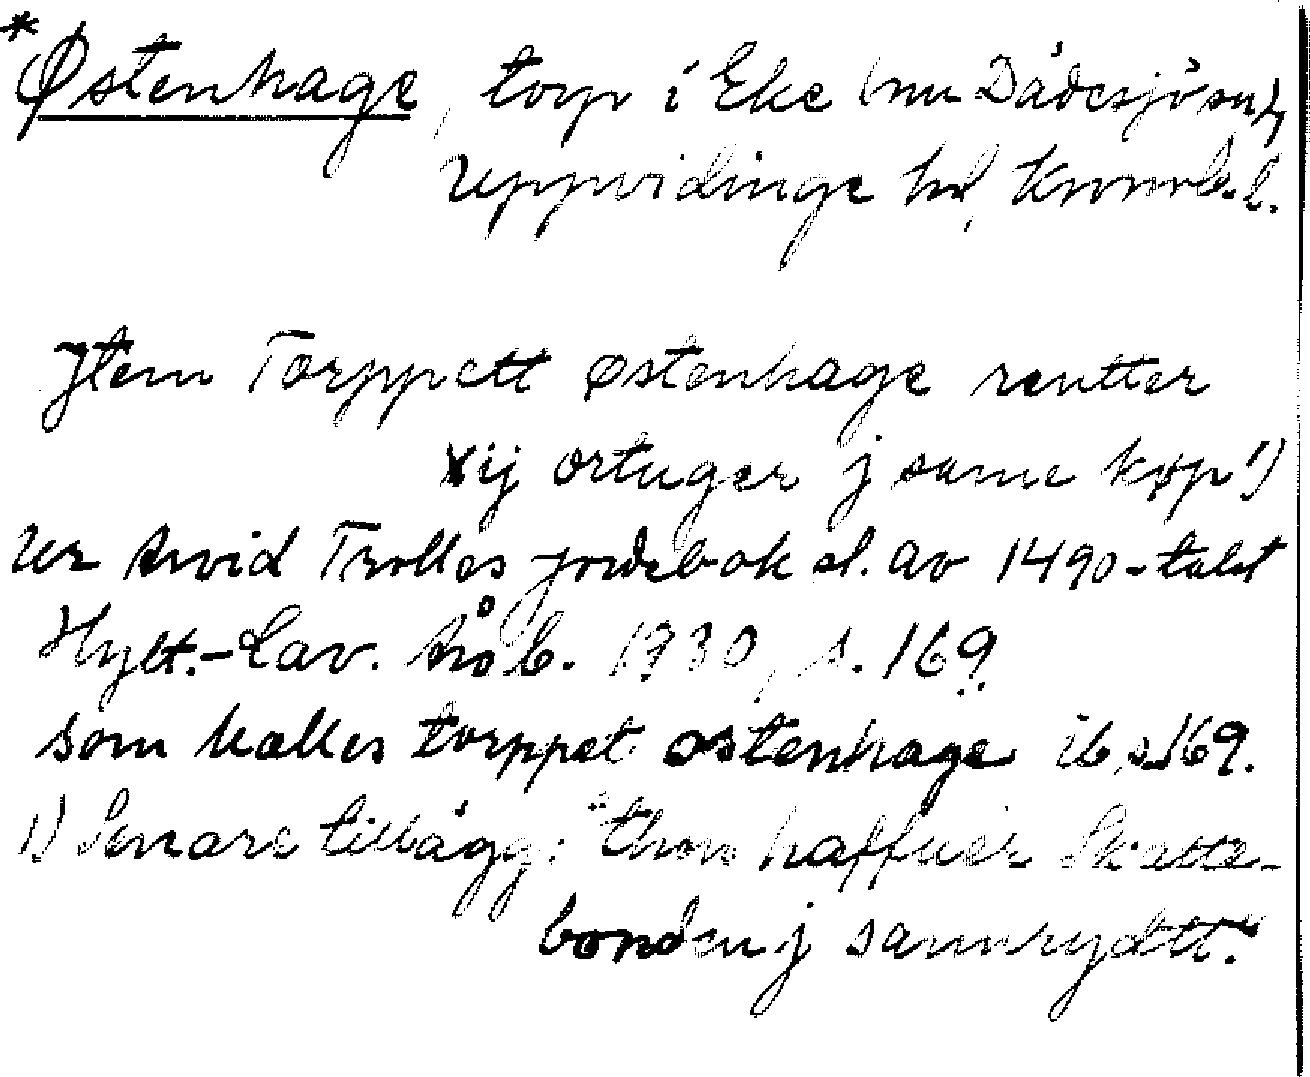 *Østenhage, torp i Eke (nu Dädesjö sn),
Uppvidinge hd, Kronob. l.
Jtem Torppett østenhage rentter
xij ortuger j same køp 1)
Ur Arvid Trolles jordebok sl. av 1490-talet
Hylt.-Cav. Årsb. 1930, s. 169.
som kalles torppet østenhage ib. s. 169.
1) Senare tillägg: "thon haffuer Skatte-
bonden j sannrydtt."